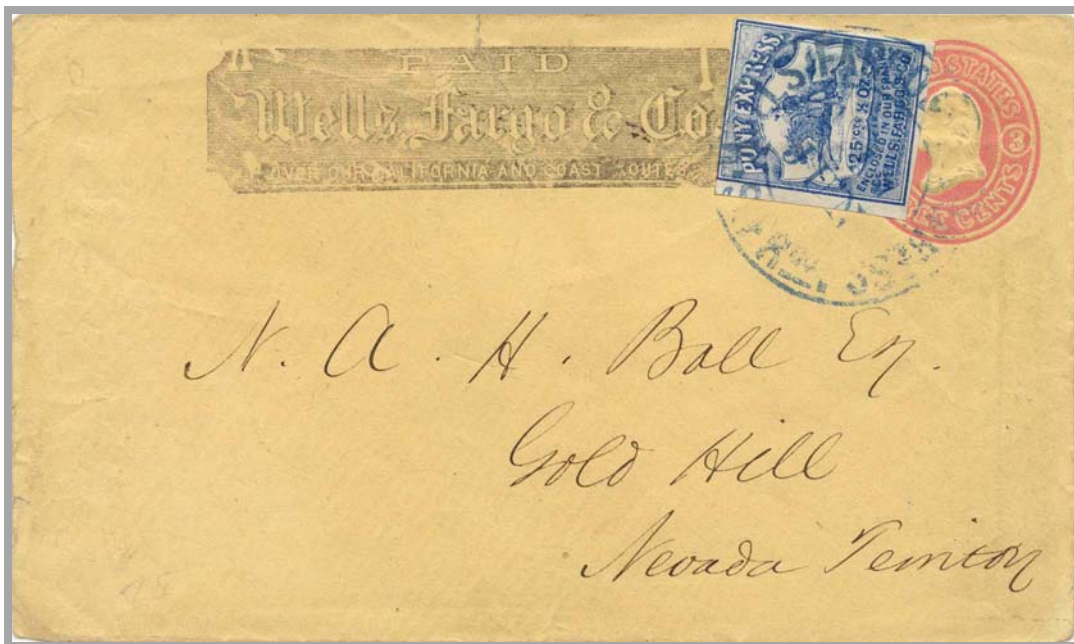 PAID
Wells, Fargo & Co
OVER OUR CALIFORNIA AND COAST ROUTES
PONY EXPRESS
25 Cts ½ OZ.
ENCLOSED IN OUR FRANKS
WELLS, FARGO & CO.
STATES
3
CENTS
N. A. H. Ball Esq.
Gold Hill
Nevada Territory